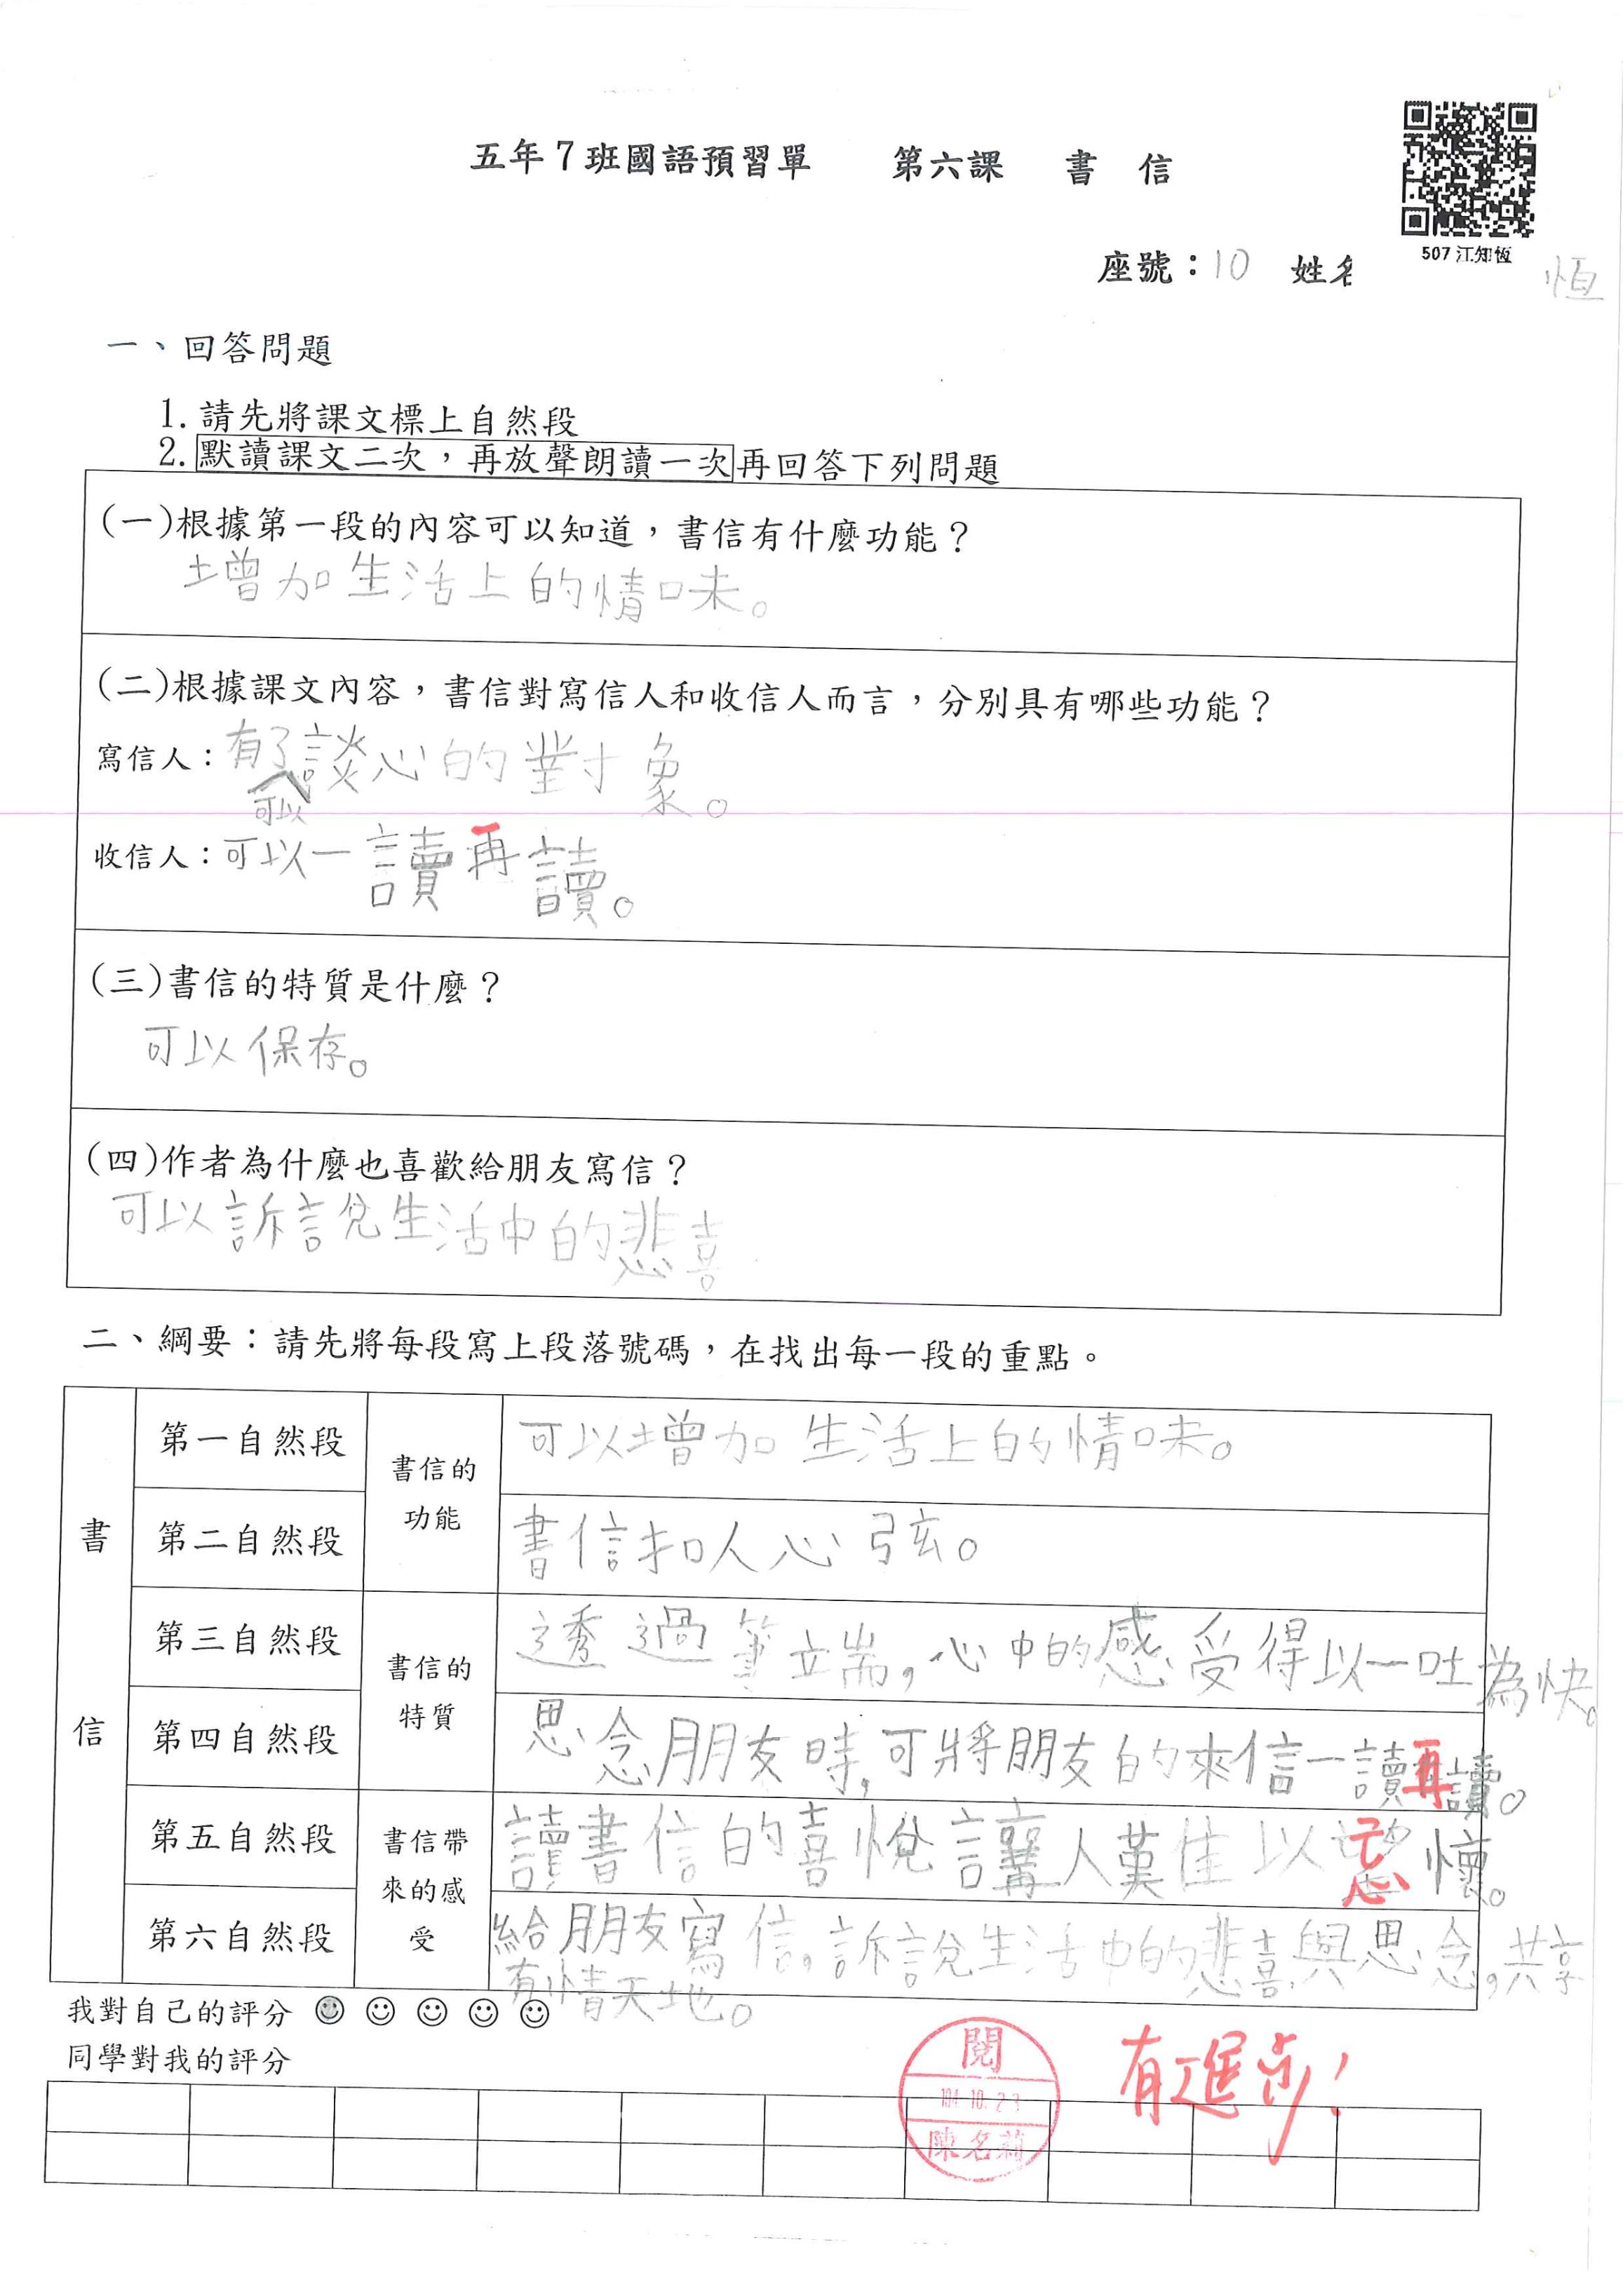 五年7班國語預習單 第六課 書 信
507 江知恆
座號：10 姓名 恆
一、回答問題
1.請先將課文標上自然段
2.默讀課文二次，再放聲朗讀一次再回答下列問題
(一)根據第一段的內容可以知道，書信有什麼功能？
增加生活上的情味。
(二)根據課文內容，書信對寫信人和收信人而言，分別具有哪些功能？
寫信人：有了談心的對象。
可以
收信人：可以一讀再讀。
(三)書信的特質是什麼？
可以保存。
(四)作者為什麼也喜歡給朋友寫信？
可以訴說生活中的悲喜
二、綱要：請先將每段寫上段落號碼，在找出每一段的重點。
書信
第一自然段 書信的功能 可以增加生活上的情味。
第二自然段 書信扣人心弦。
第三自然段 書信的特質 透過筆端，心中的感受得以一吐為快。
第四自然段 思念朋友時，可將朋友的來信一讀再讀。
第五自然段 書信帶來的感受 讀書信的喜悅讓人難以忘懷。
第六自然段 給朋友寫信，訴說生活中的悲喜與思念，共享
有情天地。
我對自己的評分
同學對我的評分
閱
104.10.23
陳名莉
有進步！